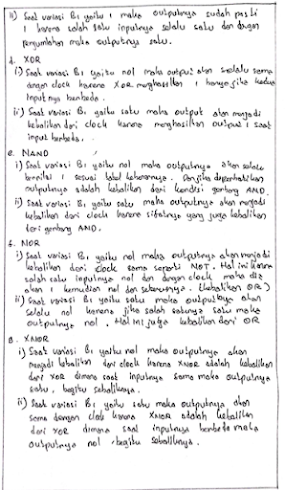 ii) Saat variasi B1 yaitu 1 maka outputnya sudah pasti
1 karena salah satu inputnya selalu satu dan dengan
penjumlahan maka outputnya satu.
d. XOR
i) Saat variasi B1 yaitu nol maka output akan selalu sama
dengan clock karena XOR menghasilkan 1 hanya jika kedua
inputnya berbeda.
ii) Saat variasi B1 yaitu satu maka output akan menjadi
kebalikan dari clock karena menghasilkan output 1 saat
input berbeda.
e. NAND
i) Saat variasi B1 yaitu nol maka outputnya akan selalu
bernilai 1 sesuai tabel kebenarannya. Dan jika diperhatikan
outputnya adalah kebalikan dari kondisi gerbang AND.
ii) Saat variasi B1 yaitu satu maka outputnya akan menjadi
kebalikan dari clock karena sifatnya yang juga kebalikan
dari gerbang AND.
f. NOR
i) Saat variasi B1 yaitu nol maka outputnya akan menjadi
kebalikan dari clock sama seperti NOT. Hal ini karena
salah satu inputnya nol dan dengan clock maka dia
akan 1 kemudian nol dan seterusnya. (kebalikan OR)
ii) Saat variasi B1 yaitu satu maka outputnya akan
selalu nol karena jika salah satunya satu maka
outputnya nol. Hal ini juga kebalikan dari OR
g. XNOR
i) Saat variasi B1 yaitu nol maka outputnya akan
menjadi kebalikan dari clock karena XNOR adalah kebalikan
dari XOR dimana saat inputnya sama maka outputnya
satu, begitu sebaliknya.
ii) Saat variasi B1 yaitu satu maka outputnya akan
sama dengan clock karena XNOR adalah kebalikan
dari XOR dimana saat inputnya berbeda maka
outputnya nol, begitu sebaliknya.